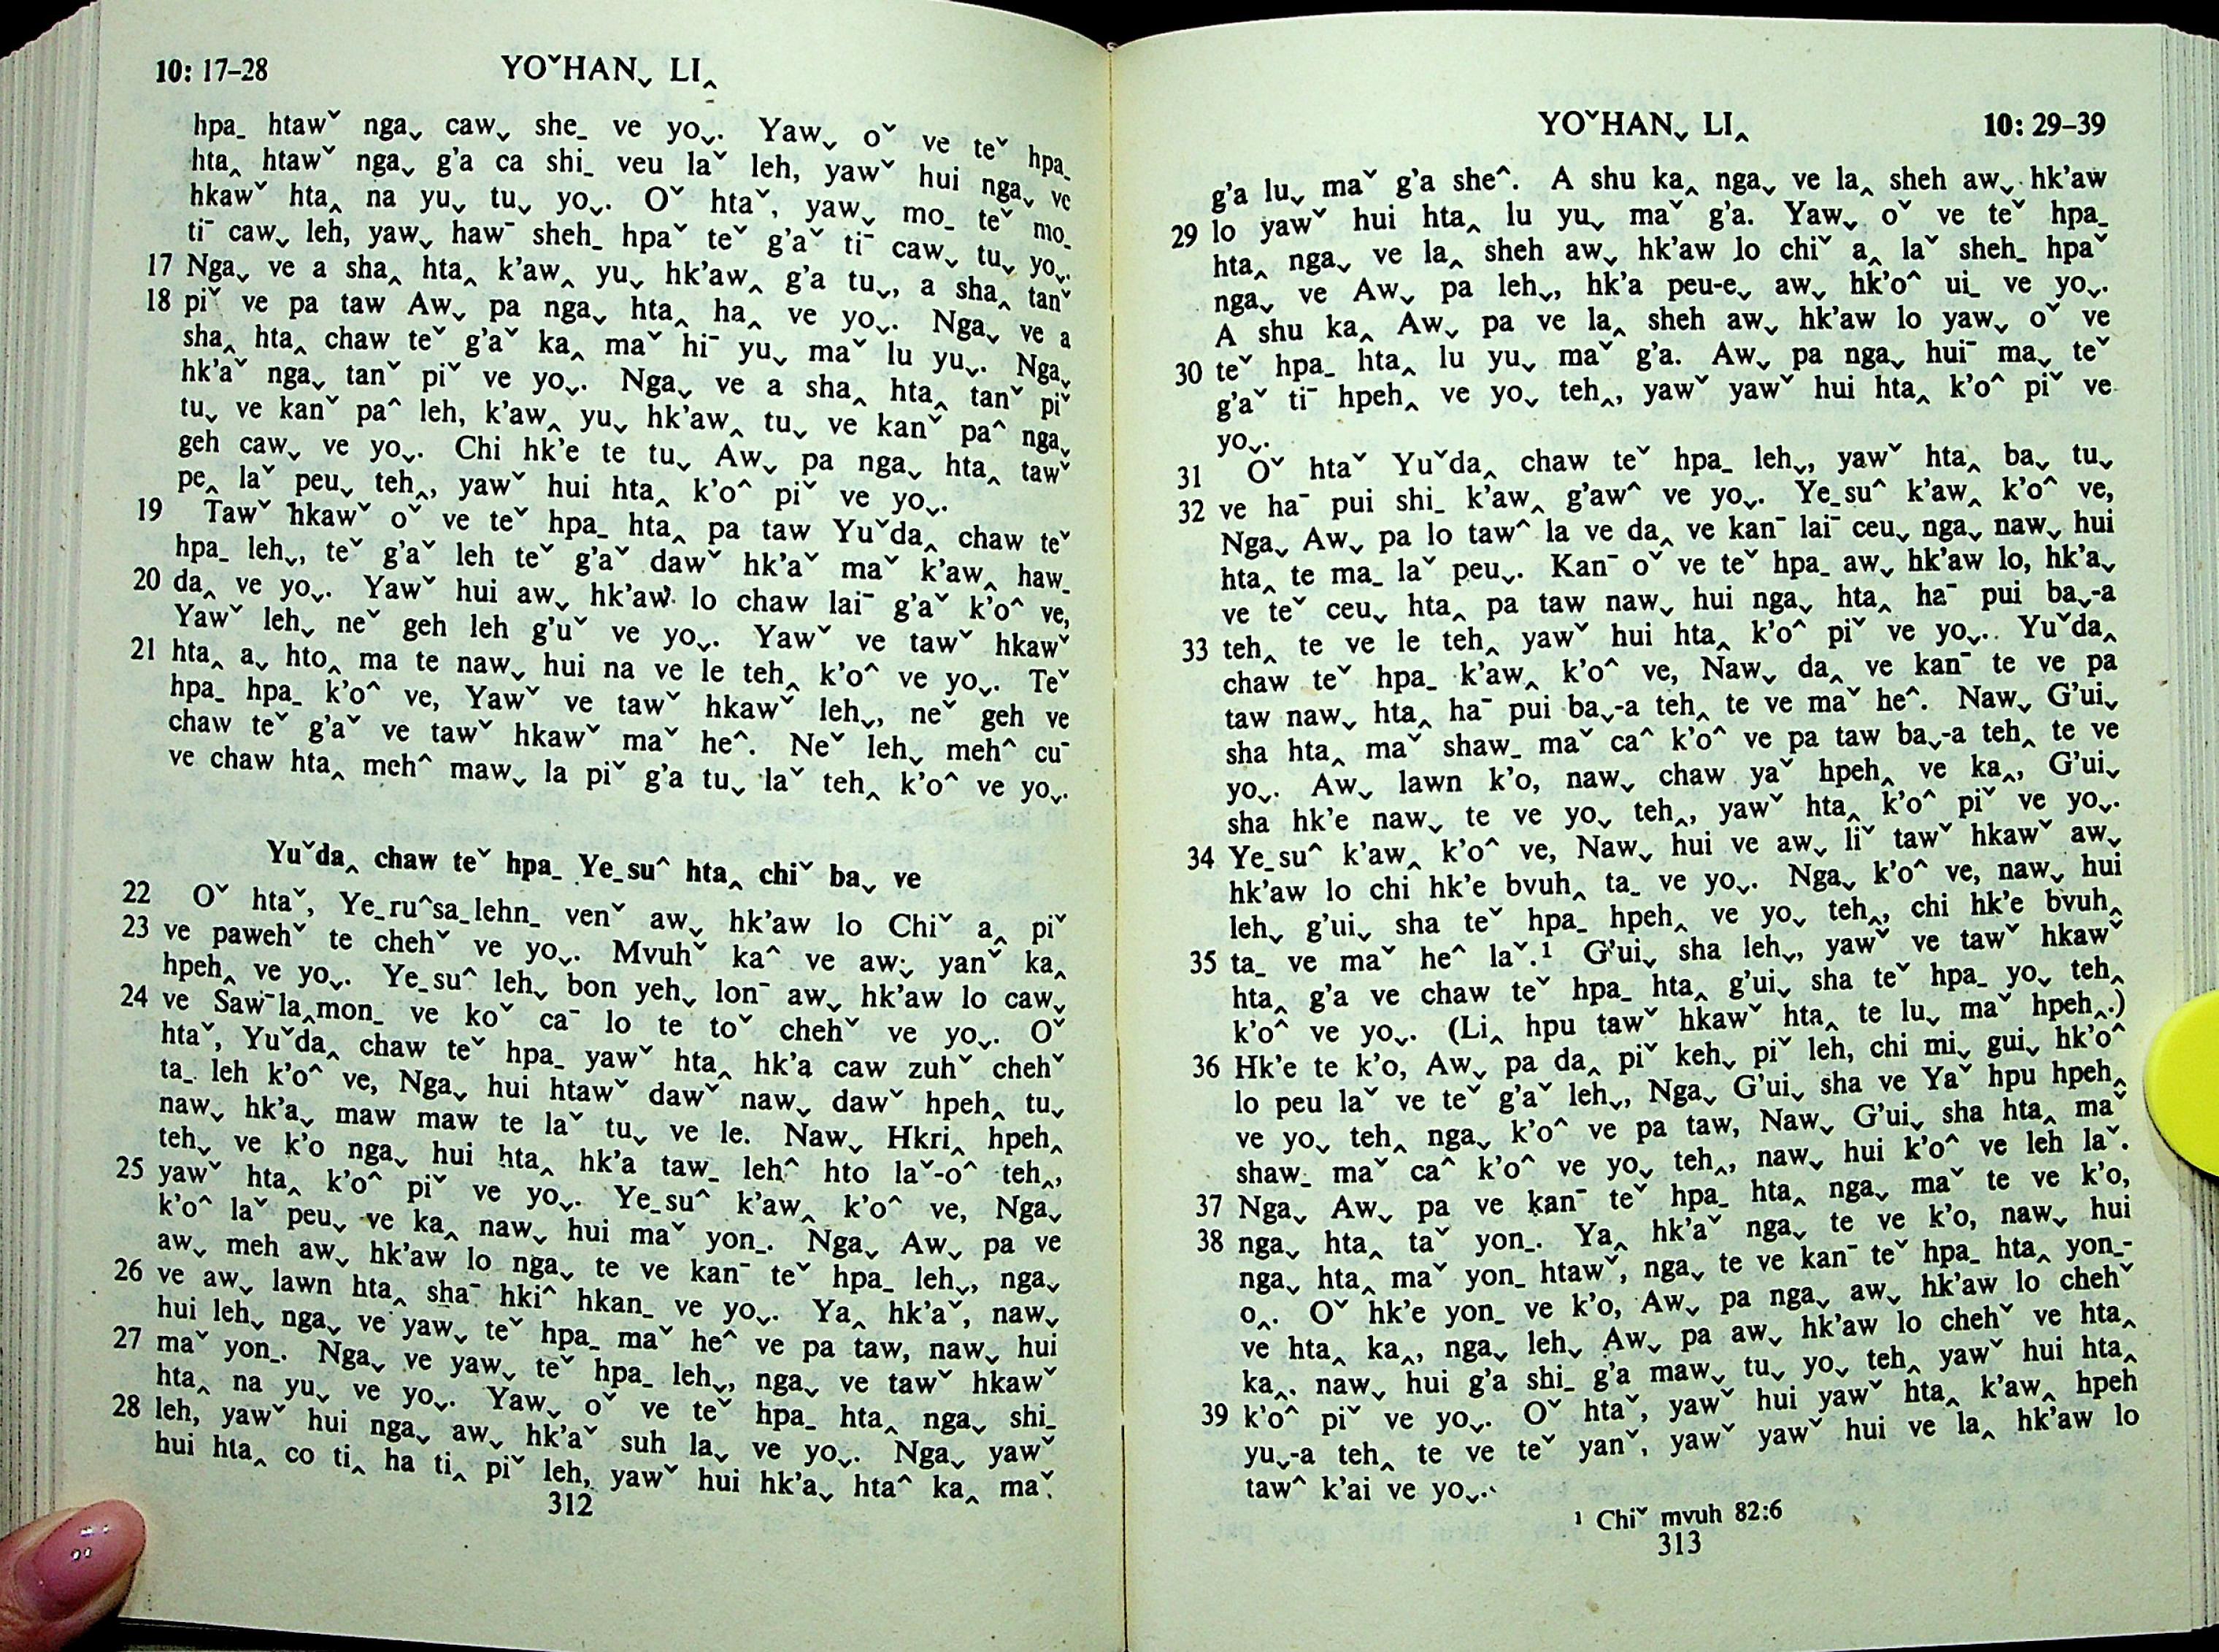 10: 17–28
YOˇHANˬ LI‸
hpaˍ htawˇ ngaˬ cawˬ sheˍ ve yoˬ. Yawˬ oˇ ve teˇ hpaˍ
hta‸ htawˇ ngaˬ g'a ca shiˍ veu laˇ leh, yawˇ hui ngaˬ ve
hkawˇ hta‸ na yuˬ tuˬ yoˬ. Oˇ htaˇ, yawˬ moˍ teˇ moˍ
tiˉ cawˬ leh, yawˬ hawˉ shehˍ hpaˇ teˇ g'aˇ tiˉ cawˬ tuˬ yoˬ.
17 Ngaˬ ve a sha‸ hta‸ k'aw‸ yuˬ hk'aw‸ g'a tuˬ, a sha‸ tanˇ
18 piˇ ve pa taw Awˬ pa ngaˬ hta‸ ha‸ ve yoˬ. Ngaˬ ve a
sha‸ hta‸ chaw teˇ g'aˇ ka‸ maˇ hiˉ yuˬ maˇ lu yuˬ. Ngaˬ
hk'aˇ ngaˬ tanˇ piˇ ve yoˬ. Ngaˬ ve a sha‸ hta‸ tanˇ piˇ
tuˬ ve kanˇ pa^ leh, k'aw‸ yuˬ hk'aw‸ tuˬ ve kanˇ pa^ ngaˬ
geh cawˬ ve yoˬ. Chi hk'e te tuˬ Awˬ pa ngaˬ hta‸ tawˇ
pe‸ laˇ peuˬ teh‸, yawˇ hui hta‸ k'o^ piˇ ve yoˬ.
19 Tawˇ hkawˇ oˇ ve teˇ hpaˍ hta‸ pa taw Yuˇda‸ chaw teˇ
hpaˍ lehˬ, teˇ g'aˇ leh teˇ g'aˇ dawˇ hk'aˇ maˇ k'aw‸ hawˍ
20 da‸ ve yoˬ. Yawˇ hui awˬ hk'aw lo chaw laiˉ g'aˇ k'o^ ve,
Yawˇ lehˬ neˇ geh leh g'uˇ ve yoˬ. Yawˇ ve tawˇ hkawˇ
21 hta‸ aˬ hto‸ ma te nawˬ hui na ve le teh‸ k'o^ ve yoˬ. Teˇ
hpaˍ hpaˍ k'o^ ve, Yawˇ ve tawˇ hkawˇ lehˬ, neˇ geh ve
chaw teˇ g'aˇ ve tawˇ hkawˇ maˇ he^. Neˇ lehˬ meh^ cuˉ
ve chaw hta‸ meh^ mawˬ la piˇ g'a tuˬ laˇ teh‸ k'o^ ve yoˬ.
Yuˇda‸ chaw teˇ hpaˍ Yeˍsu^ hta‸ chiˇ baˬ ve
22 Oˇ htaˇ, Yeˍru^saˍlehnˍ venˇ awˬ hk'aw lo Chiˇ a‸ piˇ
23 ve pawehˇ te chehˇ ve yoˬ. Mvuhˇ ka^ ve awˬ yanˇ ka‸
hpeh‸ ve yoˬ. Yeˍsu^ lehˬ bon yehˬ lonˉ awˬ hk'aw lo cawˬ
24 ve Sawˉla‸monˍ ve koˇ caˉ lo te toˇ chehˇ ve yoˬ. Oˇ
htaˇ, Yuˇda‸ chaw teˇ hpaˍ yawˇ hta‸ hk'a caw zuhˇ chehˇ
taˍ leh k'o^ ve, Ngaˬ hui htawˇ dawˇ nawˬ dawˇ hpeh‸ tuˬ
nawˬ hk'aˬ maw maw te laˇ tuˬ ve le. Nawˬ Hkri‸ hpeh‸
tehˬ ve k'o ngaˬ hui hta‸ hk'a tawˍ leh^ hto laˇ-o^ teh‸,
25 yawˇ hta‸ k'o^ piˇ ve yoˬ. Yeˍsu^ k'aw‸ k'o^ ve, Ngaˬ
k'o^ laˇ peuˬ ve ka‸ nawˬ hui maˇ yonˍ. Ngaˬ Awˬ pa ve
awˬ meh awˬ hk'aw lo ngaˬ te ve kanˉ teˇ hpaˍ lehˬ, ngaˬ
26 ve awˬ lawn hta‸ shaˉ hki^ hkanˍ ve yoˬ. Ya‸ hk'aˇ, nawˬ
hui lehˬ ngaˬ ve yawˬ teˇ hpaˍ maˇ he^ ve pa taw, nawˬ hui
27 maˇ yonˍ. Ngaˬ ve yawˬ teˇ hpaˍ lehˬ, ngaˬ ve tawˇ hkawˇ
hta‸ na yuˬ ve yoˬ. Yawˬ oˇ ve teˇ hpaˍ hta‸ ngaˬ shiˍ
28 leh, yawˇ hui ngaˬ awˬ hk'aˇ suh laˬ ve yoˬ. Ngaˬ yawˇ
hui hta‸ co ti‸ ha ti‸ piˇ leh, yawˇ hui hk'aˬ hta^ ka‸ maˇ
312
YOˇHANˬ LI‸
10: 29–39
g'a luˬ maˇ g'a she^. A shu ka‸ ngaˬ ve la‸ sheh awˬ hk'aw
29 lo yawˇ hui hta‸ lu yuˬ maˇ g'a. Yawˬ oˇ ve teˇ hpaˍ
hta‸ ngaˬ ve la‸ sheh awˬ hk'aw lo chiˇ a‸ laˇ shehˍ hpaˇ
ngaˬ ve Awˬ pa lehˬ, hk'a peu-eˬ awˬ hk'o^ uiˍ ve yoˬ.
A shu ka‸ Awˬ pa ve la‸ sheh awˬ hk'aw lo yawˬ oˇ ve
30 teˇ hpaˍ hta‸ lu yuˬ maˇ g'a. Awˬ pa ngaˬ huiˉ maˬ teˇ
g'aˇ tiˉ hpeh‸ ve yoˬ teh‸, yawˇ yawˇ hui hta‸ k'o^ piˇ ve
yoˬ.
31 Oˇ htaˇ Yuˇda‸ chaw teˇ hpaˍ lehˬ, yawˇ hta‸ baˬ tuˬ
32 ve haˉ pui shiˍ k'aw‸ g'aw^ ve yoˬ. Yeˍsu^ k'aw‸ k'o^ ve,
Ngaˬ Awˬ pa lo taw^ la ve da‸ ve kanˉ laiˉ ceuˬ ngaˬ nawˬ hui
hta‸ te maˍ laˇ peuˬ. Kanˉ oˇ ve teˇ hpaˍ awˬ hk'aw lo, hk'aˬ
ve teˇ ceuˬ hta‸ pa taw nawˬ hui ngaˬ hta‸ haˉ pui baˬ-a
33 teh‸ te ve le teh‸ yawˇ hui hta‸ k'o^ piˇ ve yoˬ. Yuˇda‸
chaw teˇ hpaˍ k'aw‸ k'o^ ve, Nawˬ da‸ ve kanˉ te ve pa
taw nawˬ hta‸ haˉ pui baˬ-a teh‸ te ve maˇ he^. Nawˬ G'uiˬ
sha hta‸ maˇ shawˍ maˇ ca^ k'o^ ve pa taw baˬ-a teh‸ te ve
yoˬ. Awˬ lawn k'o, nawˬ chaw yaˇ hpeh‸ ve ka‸, G'uiˬ
sha hk'e nawˬ te ve yoˬ teh‸, yawˇ hta‸ k'o^ piˇ ve yoˬ.
34 Yeˍsu^ k'aw‸ k'o^ ve, Nawˬ hui ve awˬ liˇ tawˇ hkawˇ awˬ
hk'aw lo chi hk'e bvuh‸ taˍ ve yoˬ. Ngaˬ k'o^ ve, nawˬ hui
lehˬ g'uiˬ sha teˇ hpaˍ hpeh‸ ve yoˬ teh‸, chi hk'e bvuh‸
35 taˍ ve maˇ he^ laˇ.¹ G'uiˬ sha lehˬ, yawˇ ve tawˇ hkawˇ
hta‸ g'a ve chaw teˇ hpaˍ hta‸ g'uiˬ sha teˇ hpaˍ yoˬ teh‸
k'o^ ve yoˬ. (Li‸ hpu tawˇ hkawˇ hta‸ te luˬ maˇ hpeh‸.)
36 Hk'e te k'o, Awˬ pa da‸ piˇ kehˬ piˇ leh, chi miˬ guiˬ hk'o^
lo peu laˇ ve teˇ g'aˇ lehˬ, Ngaˬ G'uiˬ sha ve Yaˇ hpu hpeh‸
ve yoˬ teh‸ ngaˬ k'o^ ve pa taw, Nawˬ G'uiˬ sha hta‸ maˇ
shawˍ maˇ ca^ k'o^ ve yoˬ teh‸, nawˬ hui k'o^ ve leh laˇ.
37 Ngaˬ Awˬ pa ve kanˉ teˇ hpaˍ hta‸ ngaˬ maˇ te ve k'o,
38 ngaˬ hta‸ taˇ yonˍ. Ya‸ hk'aˇ ngaˬ te ve k'o, nawˬ hui
ngaˬ hta‸ maˇ yonˍ htawˇ, ngaˬ te ve kanˉ teˇ hpaˍ hta‸ yonˍ-
o‸. Oˇ hk'e yonˍ ve k'o, Awˬ pa ngaˬ awˬ hk'aw lo chehˇ
ve hta‸ ka‸, ngaˬ lehˬ Awˬ pa awˬ hk'aw lo chehˇ ve hta‸
ka‸. nawˬ hui g'a shiˍ g'a mawˬ tuˬ yoˬ teh‸ yawˇ hui hta‸
39 k'o^ piˇ ve yoˬ. Oˇ htaˇ, yawˇ hui yawˇ hta‸ k'aw‸ hpeh
yuˬ-a teh‸ te ve teˇ yanˇ, yawˇ yawˇ hui ve la‸ hk'aw lo
taw^ k'ai ve yoˬ.
¹ Chiˇ mvuh 82:6
313